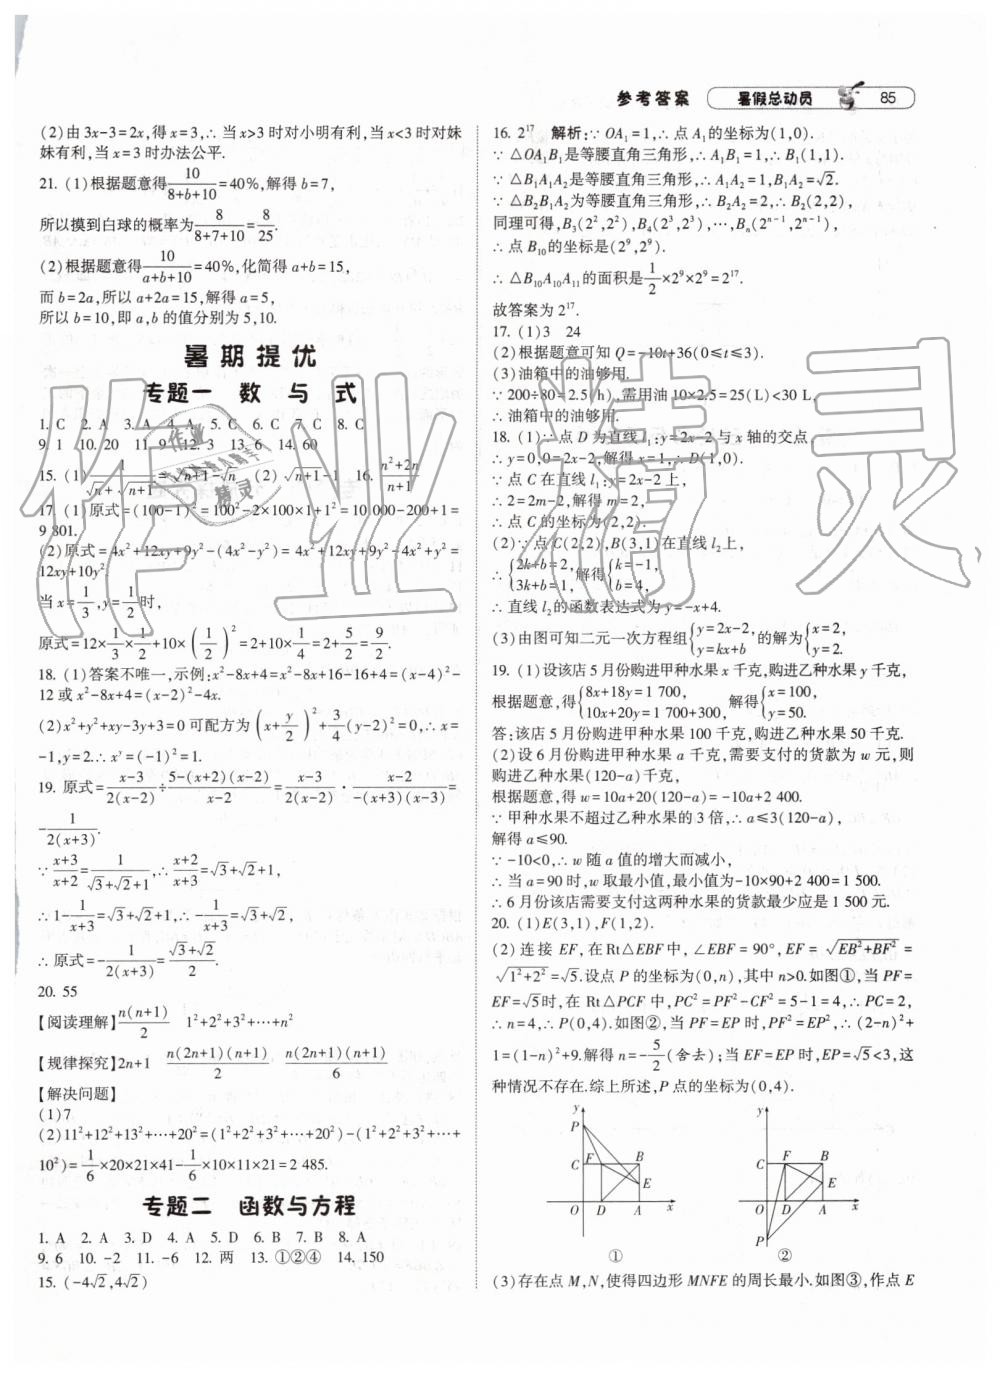 参考答案 暑假总动员 85
(2)由 3x-3=2x,得 x=3,∴当 x>3 时对小明有利,当 x<3 时对妹
妹有利,当 x=3 时办法公平.
21. (1)根据题意得 10/(8+b+10)=40%,解得 b=7,
所以摸到白球的概率为 8/(8+7+10)=8/25.
(2)根据题意得 10/(a+b+10)=40%,化简得 a+b=15,
而 b=2a,所以 a+2a=15,解得 a=5,
所以 b=10,即 a,b 的值分别为 5,10.
暑期提优
专题一 数与式
1. C 2. A 3. A 4. A 5. C 6. C 7. C 8. C
9. 1 10. 20 11. 9 12. 3 13. 6 14. 60
15. (1) 1/(√n+√(n+1))=√(n+1)-√n (2)√(n+1)-1 16. (n²+2n)/(n+1)
17. (1)原式=(100-1)²=100²-2×100×1+1²=10 000-200+1=
9 801.
(2)原式=4x²+12xy+9y²-(4x²-y²)=4x²+12xy+9y²-4x²+y²=
12xy+10y².
当 x=1/3,y=1/2时,
原式=12×1/3×1/2+10×(1/2)²=2+10×1/4=2+5/2=9/2.
18. (1)答案不唯一,示例:x²-8x+4=x²-8x+16-16+4=(x-4)²-
12或 x²-8x+4=(x-2)²-4x.
(2)x²+y²+xy-3y+3=0 可配方为(x+y/2)²+3/4(y-2)²=0,∴x=
-1,y=2.∴xʸ=(-1)²=1.
19. 原式=(x-3)/(2(x-2))÷(5-(x+2)(x-2))/(x-2)=(x-3)/(2(x-2))·(x-2)/(-(x+3)(x-3))=
-1/(2(x+3)).
∵(x+3)/(x+2)=1/(√3+√2+1),∴(x+2)/(x+3)=√3+√2+1,
∴1-1/(x+3)=√3+√2+1,∴-1/(x+3)=√3+√2,
∴原式=-1/(2(x+3))=(√3+√2)/2.
20. 55
【阅读理解】n(n+1)/2 1²+2²+3²+…+n²
【规律探究】2n+1 n(2n+1)(n+1)/2 n(2n+1)(n+1)/6
【解决问题】
(1)7
(2)11²+12²+13²+…+20²=(1²+2²+3²+…+20²)-(1²+2²+3²+…+
10²)=1/6×20×21×41-1/6×10×11×21=2 485.
专题二 函数与方程
1. A 2. A 3. D 4. A 5. D 6. B 7. B 8. A
9. 6 10. -2 11. -6 12. 两 13. ①②④ 14. 150
15. (-4√2,4√2)
16. 2¹⁷ 解析:∵OA₁=1,∴点 A₁的坐标为(1,0).
∵△OA₁B₁是等腰直角三角形,∴A₁B₁=1,∴B₁(1,1).
∵△B₁A₁A₂是等腰直角三角形,∴A₁A₂=1,B₁A₂=√2.
∵△B₂B₁A₂为等腰直角三角形,∴B₂A₂=2,∴B₂(2,2),
同理可得,B₃(2²,2²),B₄(2³,2³),…,Bₙ(2ⁿ⁻¹,2ⁿ⁻¹),
∴点 B₁₀的坐标是(2⁹,2⁹).
∴△B₁₀A₁₀A₁₁的面积是1/2×2⁹×2⁹=2¹⁷.
故答案为 2¹⁷.
17. (1)3 24
(2)根据题意可知 Q=-10t+36(0≤t≤3).
(3)油箱中的油够用.
∵200÷80=2.5(h),需用油 10×2.5=25(L)<30 L,
∴油箱中的油够用.
18. (1)∵点 D 为直线 l₁:y=2x-2 与 x 轴的交点,
∴y=0,0=2x-2,解得 x=1,∴D(1,0).
∵点 C 在直线 l₁:y=2x-2 上,
∴2=2m-2,解得 m=2,
∴点 C 的坐标为(2,2).
(2)∵点 C(2,2),B(3,1)在直线 l₂上,
∴{2k+b=2, 3k+b=1, 解得{k=-1, b=4,
∴直线 l₂的函数表达式为 y=-x+4.
(3)由图可知二元一次方程组{y=2x-2, y=kx+b 的解为{x=2, y=2.
19. (1)设该店 5 月份购进甲种水果 x 千克,购进乙种水果 y 千克,
根据题意,得{8x+18y=1 700, 10x+20y=1 700+300, 解得{x=100, y=50.
答:该店 5 月份购进甲种水果 100 千克,购进乙种水果 50 千克.
(2)设 6 月份购进甲种水果 a 千克,需要支付的货款为 w 元,则
购进乙种水果(120-a)千克,
根据题意,得 w=10a+20(120-a)=-10a+2 400.
∵甲种水果不超过乙种水果的 3 倍,∴a≤3(120-a),
解得 a≤90.
∵-10<0,∴w 随 a 值的增大而减小,
∴当 a=90 时,w 取最小值,最小值为-10×90+2 400=1 500.
∴6 月份该店需要支付这两种水果的货款最少应是 1 500 元.
20. (1)E(3,1),F(1,2).
(2)连接 EF,在 Rt△EBF 中,∠EBF=90°,EF=√(EB²+BF²)=
√(1²+2²)=√5.设点 P 的坐标为(0,n),其中 n>0.如图①,当 PF=
EF=√5时,在 Rt△PCF 中,PC²=PF²-CF²=5-1=4,∴PC=2,
∴n=4,∴P(0,4).如图②,当 PF=EP 时,PF²=EP²,∴(2-n)²+
1=(1-n)²+9.解得 n=-5/2(舍去);当 EF=EP 时,EP=√5<3,这
种情况不存在.综上所述,P 点的坐标为(0,4).
y P C F B E O D A x ①
y C F B E O D A x P ②
(3)存在点 M,N,使得四边形 MNFE 的周长最小.如图③,作点 E
作业精灵
作业
精灵